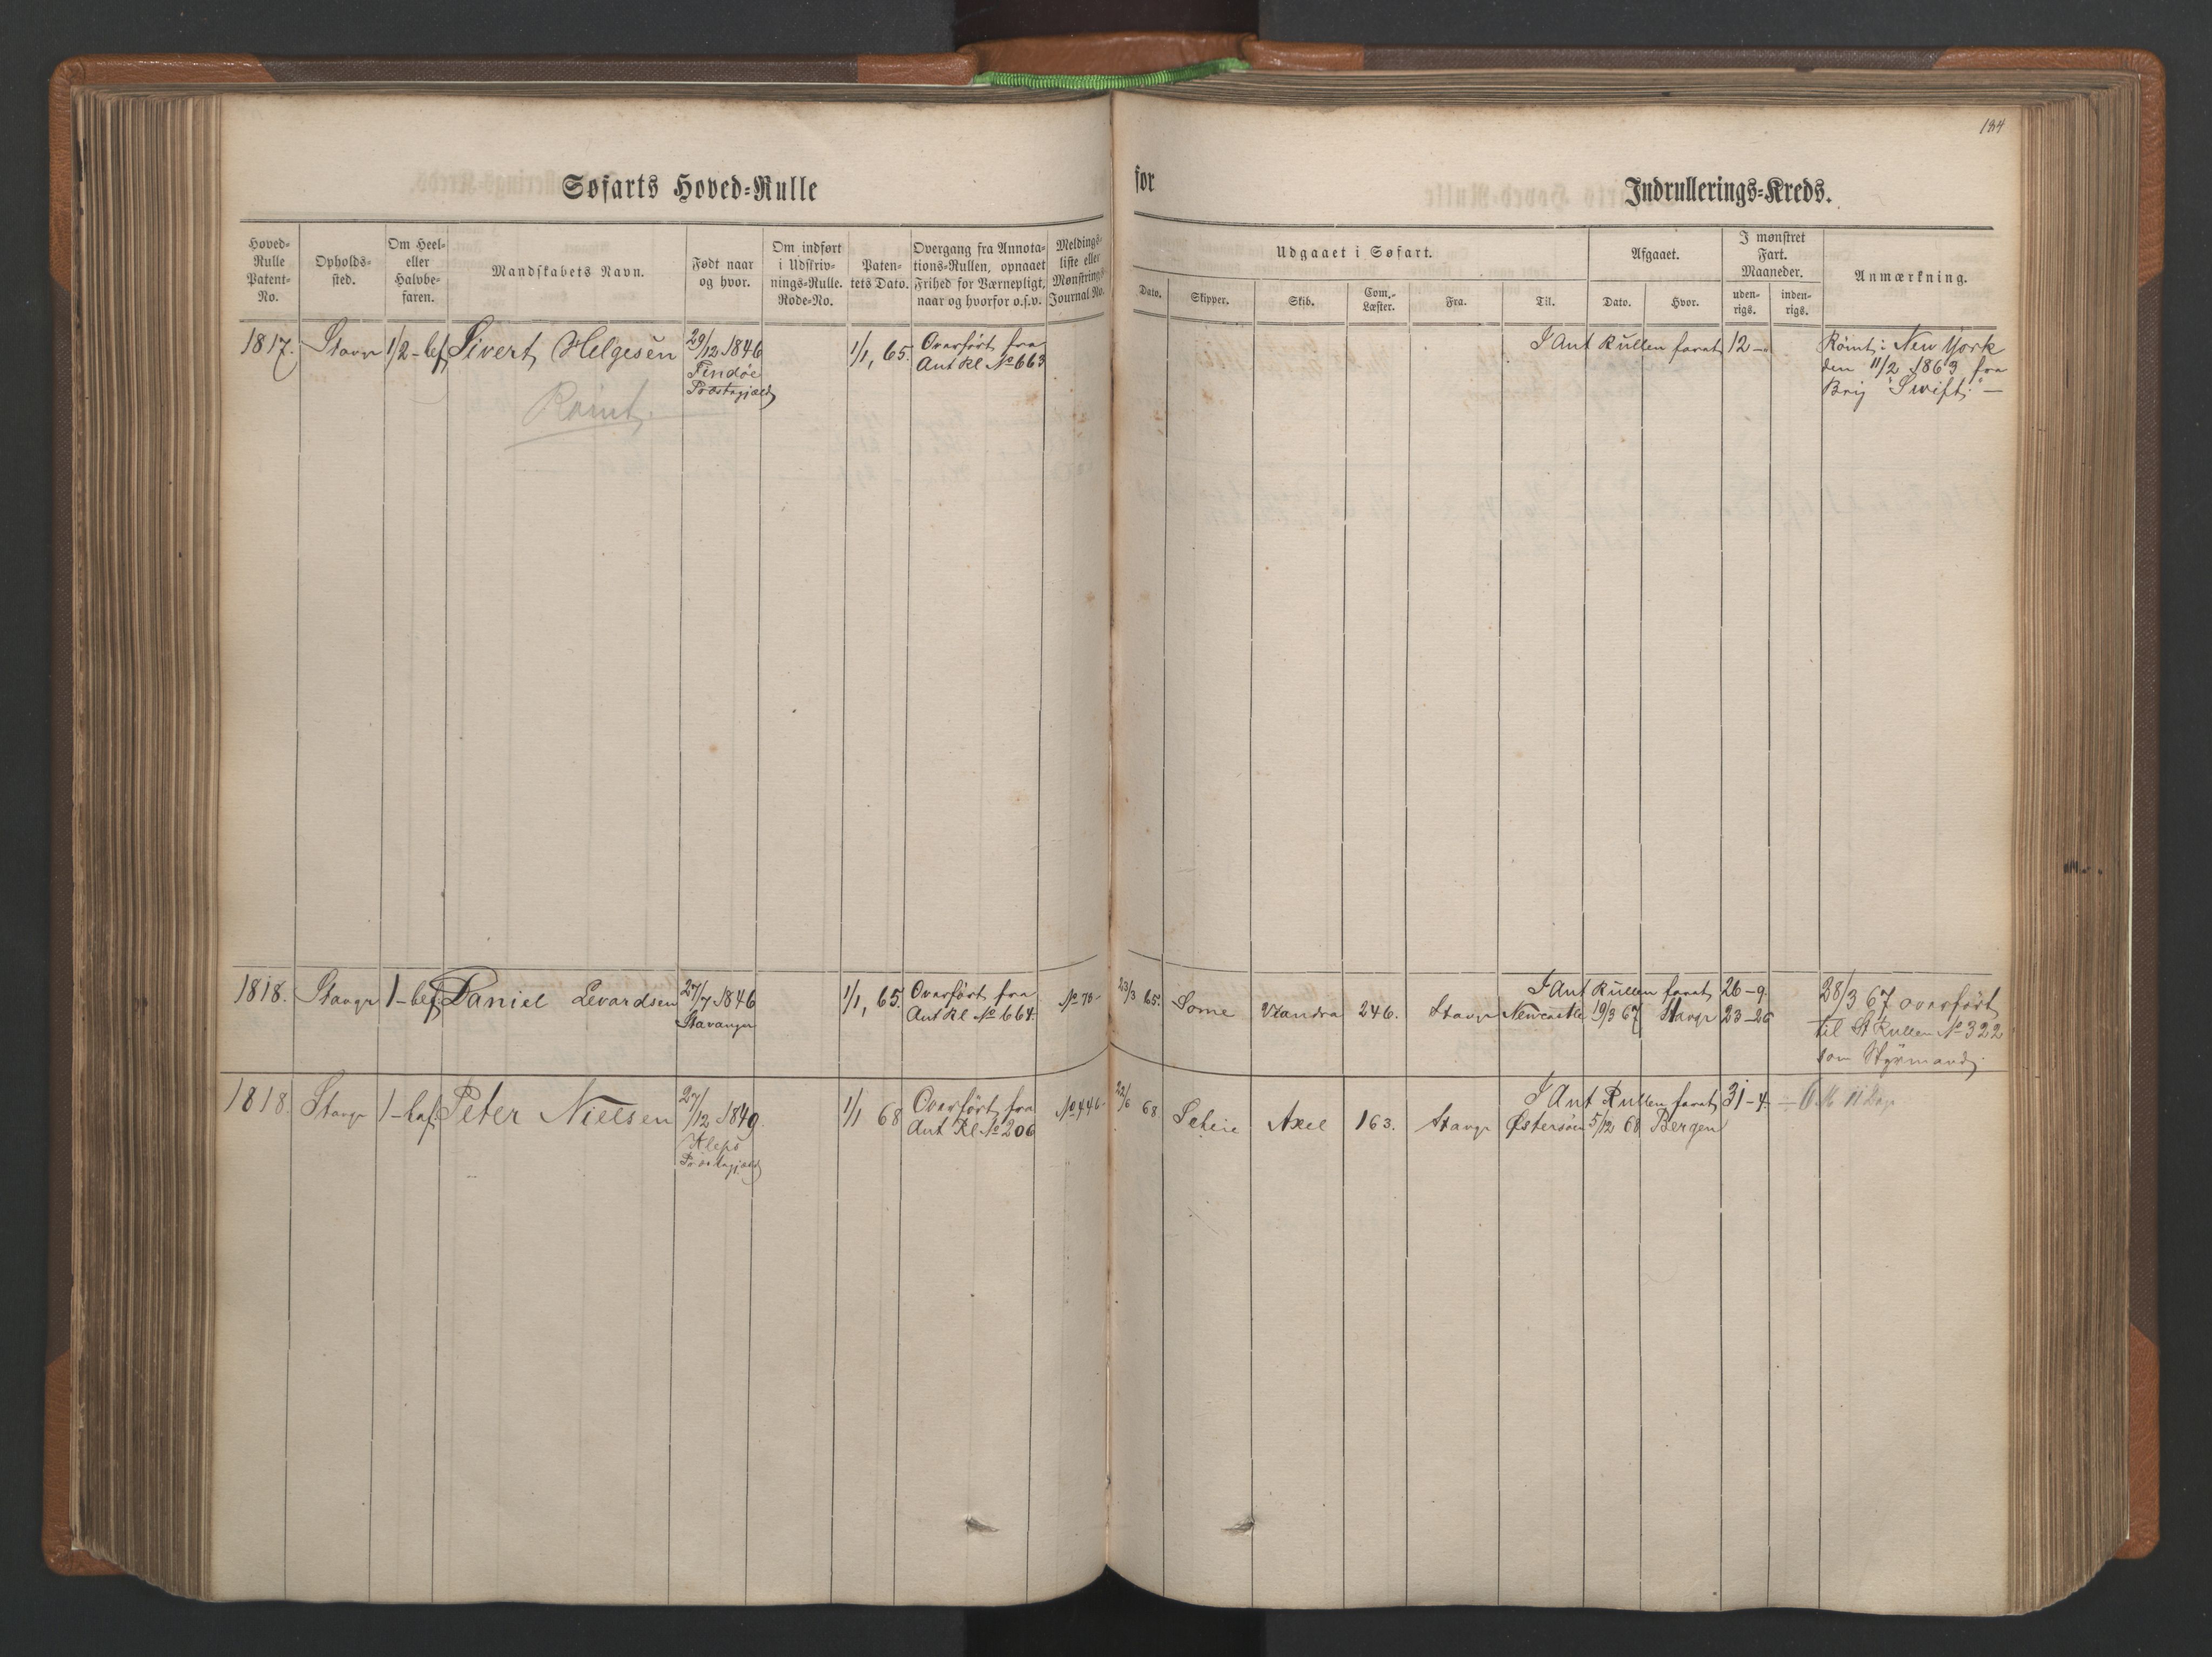 184
Søfarts Hoved-Rulle
for
Indrullerings-Kreds.
Hoved-Rulle Patent-No.
Opholds-sted.
Om Heel- eller Halvbe-faren.
Mandskabets Navn.
Født naar og hvor.
Om indført i Udskriv-nings-Rulle. Rode-No.
Paten-tets Dato.
Overgang fra Annota-tions-Rullen, opnaaet Frihed for Værnepligt, naar og hvorfor o.s.v.
Meldings-liste eller Mønstrings-Journal No.
Udgaaet i Søfart.
Dato.
Skipper.
Skib.
Com.-Læster.
Fra.
Til.
Afgaaet.
Dato.
Hvor.
I mønstret Fart. Maaneder.
uden-rigs.
inden-rigs.
Anmærkning.
1817. Stavgr 1/2-bef Sivert Helgesen 29/12 1846 1/1, 65. Overført fra I Ant Rullen faret 12- Römt i New York
Findöe Ant Rl No 663 den 11/2 1863 fra
Præstegjæld Brig "Swift". —
Römt.
1818. Stavgr 1-bef. Daniel Evardsen 27/7 1846 1/1, 65. Overført fra I Ant Rullen faret 26-9.
Stavanger Ant Rl No 664. No 78- 23/3 65. Some 246. Stavgr Newcastle 19/3 67 Stavgr 23-26
28/3 67 overført
til St Rullen No 322
som Styrmand.
1818. Stavgr 1-bef. Peter Nielsen 27/12 1849. 1/1 68 Overført fra I Ant Rullen faret 31-4. ÷ 6 M 11 Dage
Klepp Ant Rl No 206 No 446- 22/6 68 Scheie Axel 163. Stavgr Østersöen 5/12 68 Bergen
Præstegjæld